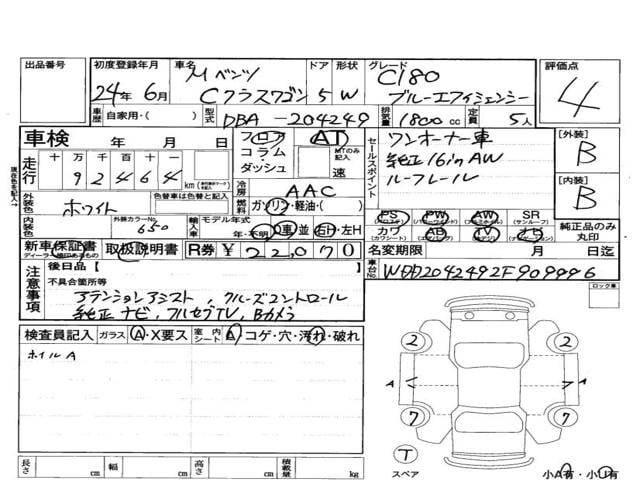 出品番号 初度登録年月 車名 ドア 形状 グレード 評価点
24年 6月 Mベンツ Cクラスワゴン 5 W C180 ブルーエフィシェンシー 4
車歴 自家用・( ) 型式 DBA-204249 排気量 1800cc 定員 5人
車検 年 月 日 フロア コラム ダッシュ AT MTのみ記入 速
セールスポイント ワンオーナー車 [外装] B
純正16inAW
ルーフレール [内装] B
走行 十 万 千 百 十 一
9 2 4 6 4 km
冷房 AAC
外装色 ホワイト 色替車は色替と記入 燃料 ガソリン・軽油・( )
内装色 外装カラーNo. 650 輸入車 モデル年式 年・不明 D車 並 右H・左H
PS PW AW SR
カワ AB TV ナビ 純正品のみ丸印
新車保証書 取扱説明書 R券 ¥22,070 名変期限 月 日迄
注意事項 後日品【 】 車台No. WDD2042492F909996
不具合箇所等 ロック車
アテンションアシスト、クルーズコントロール
純正ナビ、フルセグTV、Bカメラ
検査員記入 ガラス A・X要ス 室内シート A コゲ・穴・汚れ・破れ
ホイルA
2 2
A A
7 7
T
スペア 小A有・小U有
長さ cm 幅 cm 高さ cm 積載量 kg
現在色を記入→